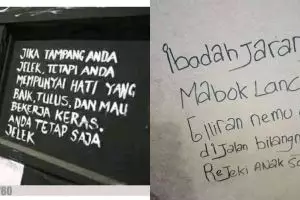 JIKA TAMPANG ANDA
JELEK, TETAPI ANDA
MEMPUNYAI HATI YANG
BAIK, TULUS, DAN MAU
BEKERJA KERAS.
ANDA TETAP SAJA
JELEK
Ibadah Jaran
Mabok Lanc
Giliran nemu
diJalan bilangn
ReJeki ANAK So